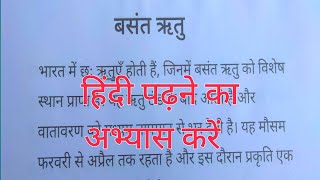 बसंत ऋतु
भारत में छः ऋतुएँ होती हैं, जिनमें बसंत ऋतु को विशेष
स्थान
हिंदी पढ़ने का
और
वातावरण
अभ्यास करें
है। यह मौसम
फरवरी से अप्रैल तक रहता है और इस दौरान प्रकृति एक